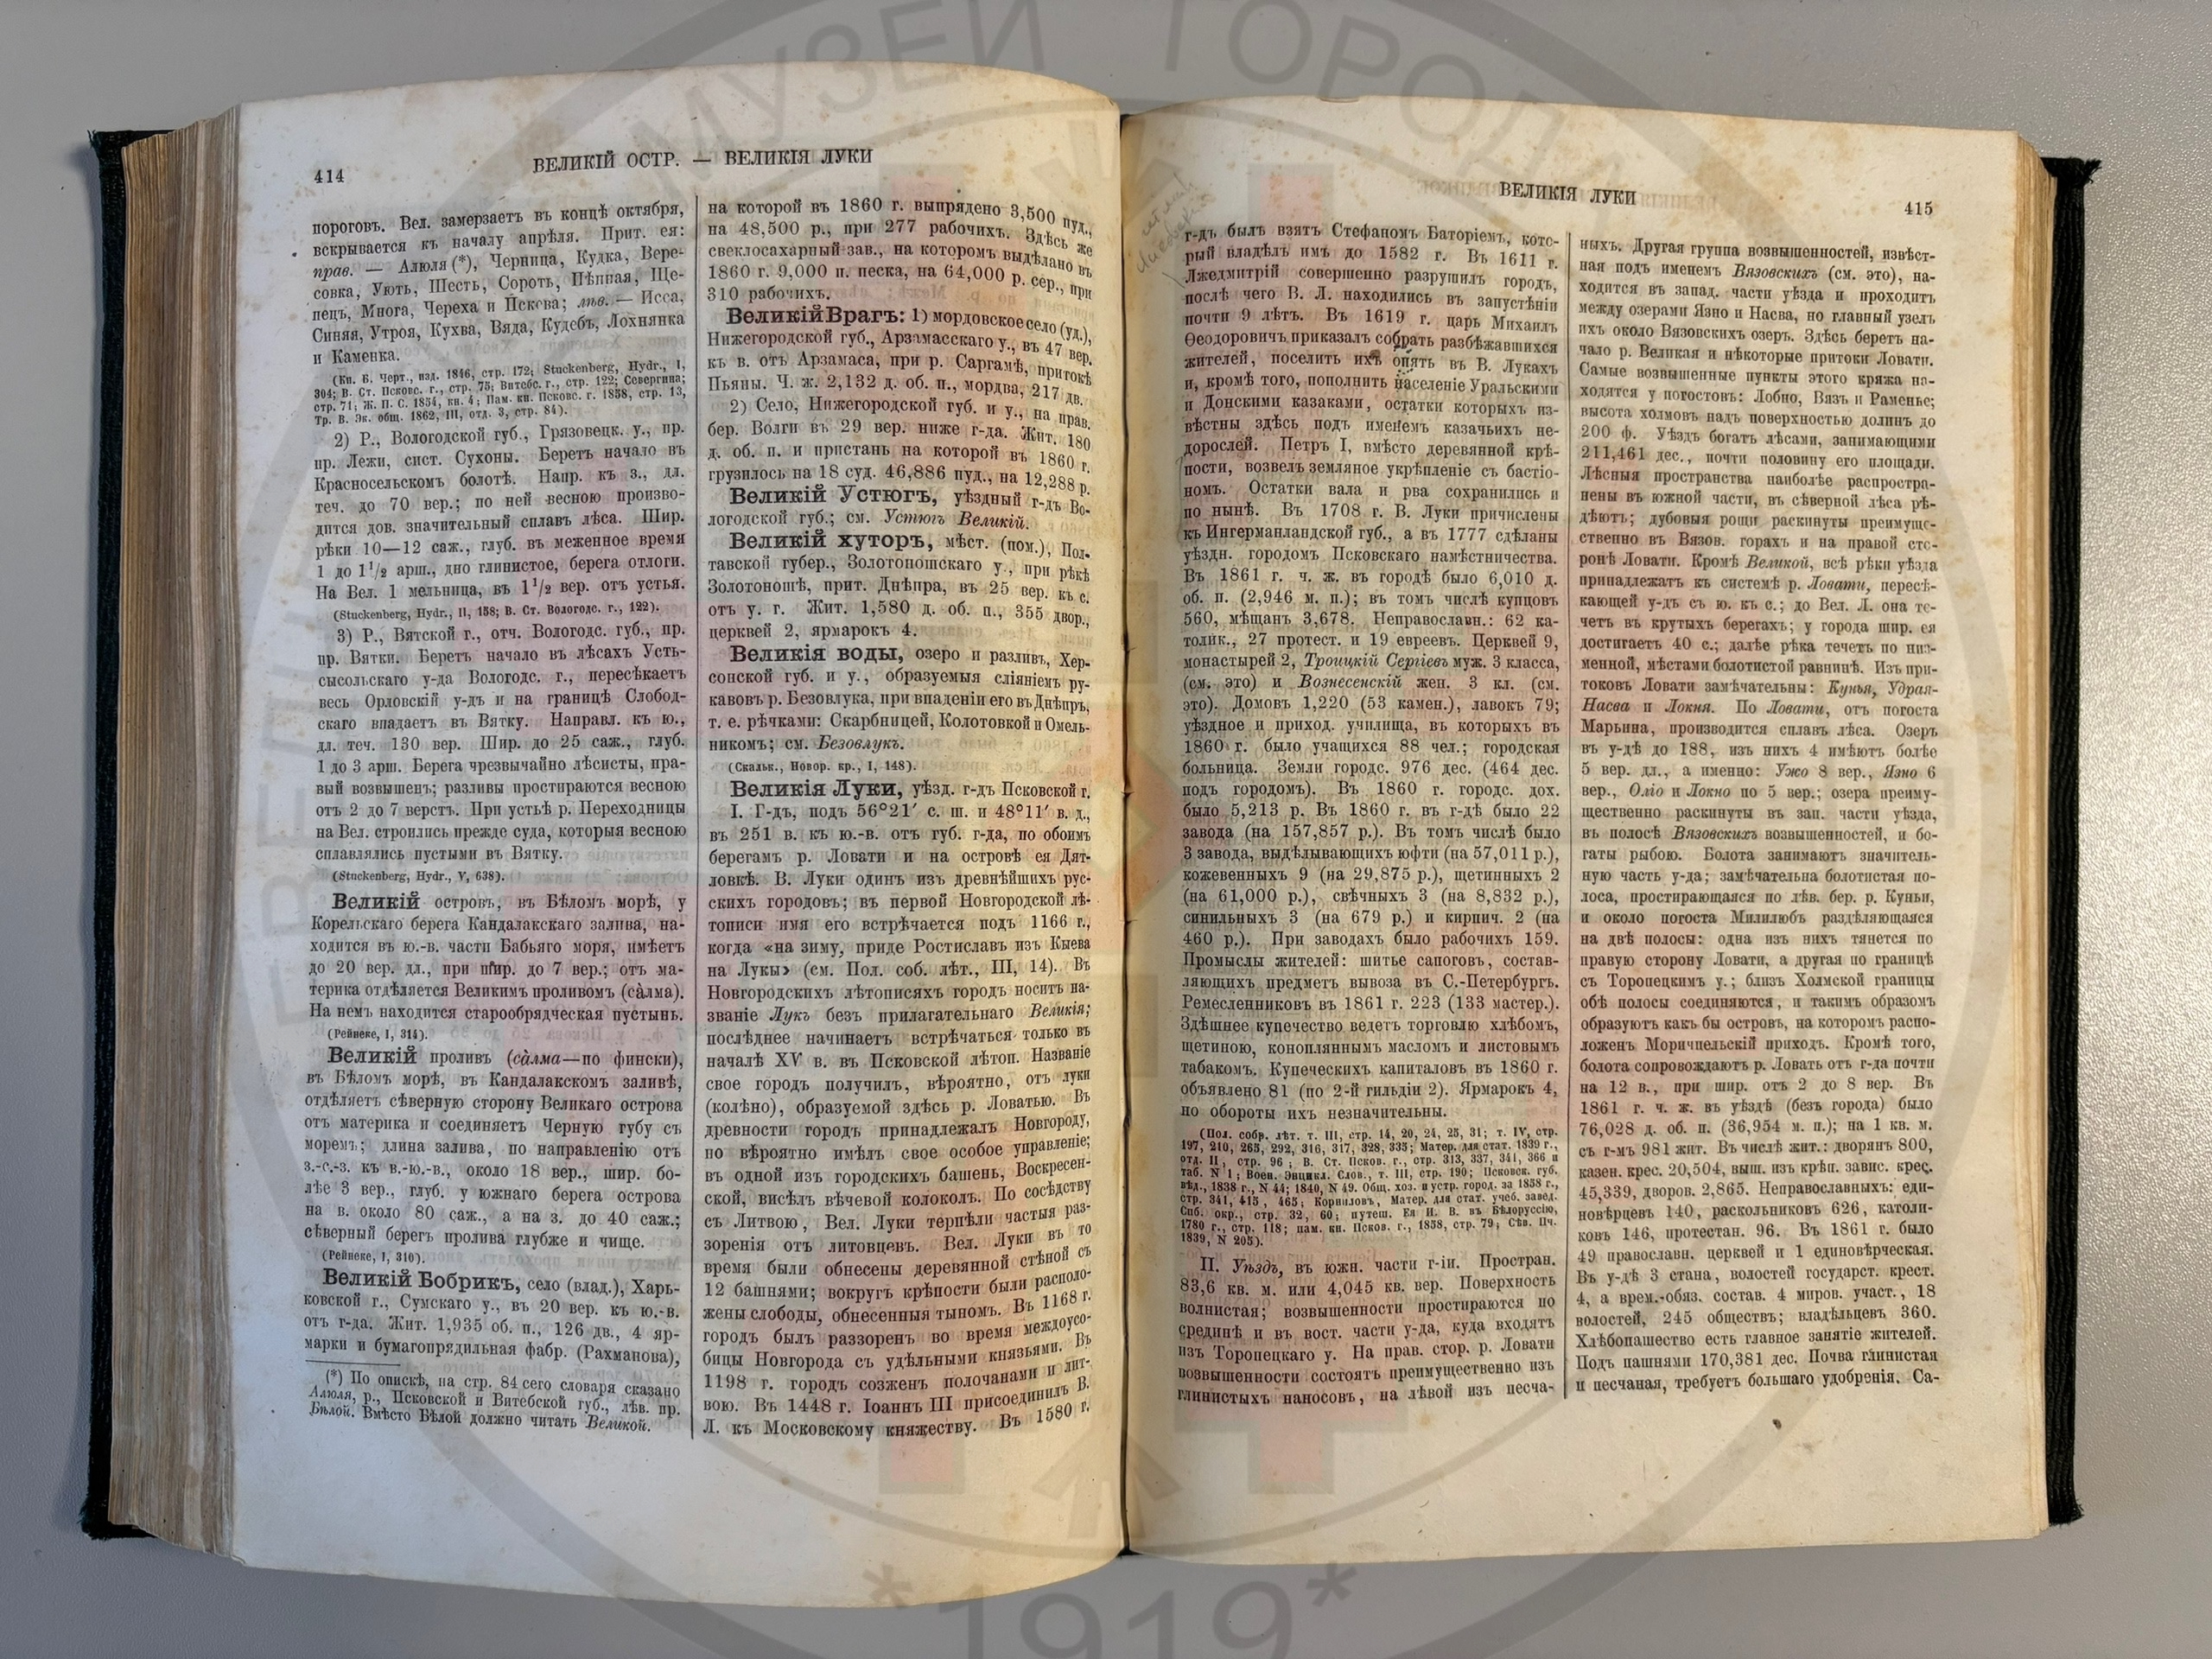 414
ВЕЛИКІЙ ОСТР. — ВЕЛИКІЯ ЛУКИ
пороговъ. Вел. замерзаетъ въ концѣ октября,
вскрывается къ началу апрѣля. Прит. ея:
прав. — Алюля (*), Черница, Кудка, Вере-
совка, Ують, Шесть, Сороть, Пѣпная, Ще-
пецъ, Многа, Череха и Пскова; лѣв. — Исса,
Синяя, Утроя, Кухва, Вяда, Кудебъ, Лохнянка
и Каменка.
(Кн. Б. Черт., изд. 1846, стр. 172; Stuckenberg, Hydr., I,
304; В. Ст. Псковс. г., стр. 75; Витебс. г., стр. 122; Севергина;
стр. 71; Ж. П. С. 1854, кн. 4; Пам. кн. Псковс. г. 1858, стр. 13,
Тр. В. Эк. общ. 1862, III, отд. 3, стр. 84).
2) Р., Вологодской губ., Грязовецк. у., пр.
пр. Лежи, сист. Сухоны. Беретъ начало въ
Красносельскомъ болотѣ. Напр. къ з., дл.
теч. до 70 вер.; по ней весною произво-
дится дов. значительный сплавъ лѣса. Шир.
рѣки 10—12 саж., глуб. въ меженное время
1 до 1 1/2 арш., дно глинистое, берега отлоги.
На Вел. 1 мельница, въ 1 1/2 вер. отъ устья.
(Stuckenberg, Hydr., II, 158; В. Ст. Вологодс. г., 122).
3) Р., Вятской г., отч. Вологодс. губ., пр.
пр. Вятки. Беретъ начало въ лѣсахъ Усть-
сысольскаго у-да Вологодс. г., пересѣкаетъ
весь Орловскій у-дъ и на границѣ Слобод-
скаго впадаетъ въ Вятку. Направл. къ ю.,
дл. теч. 130 вер. Шир. до 25 саж., глуб.
1 до 3 арш. Берега чрезвычайно лѣсисты, пра-
вый возвышенъ; разливы простираются весною
отъ 2 до 7 верстъ. При устьѣ р. Переходницы
на Вел. строились прежде суда, которыя весною
сплавлялись пустыми въ Вятку.
(Stuckenberg, Hydr., V, 638).
Великій островъ, въ Бѣломъ морѣ, у
Корельскаго берега Кандалакскаго залива, на-
ходится въ ю.-в. части Бабьяго моря, имѣетъ
до 20 вер. дл., при шир. до 7 вер.; отъ ма-
терика отдѣляется Великимъ проливомъ (са̀лма).
На немъ находится старообрядческая пустынь.
(Рейнеке, I, 314).
Великій проливъ (са̀лма—по фински),
въ Бѣломъ морѣ, въ Кандалакскомъ заливѣ,
отдѣляетъ сѣверную сторону Великаго острова
отъ материка и соединяетъ Черную губу съ
моремъ; длина залива, по направленію отъ
з.-с.-з. къ в.-ю.-в., около 18 вер., шир. бо-
лѣе 3 вер., глуб. у южнаго берега острова
на в. около 80 саж., а на з. до 40 саж.;
сѣверный берегъ пролива глубже и чище.
(Рейнеке, I, 310).
Великій Бобрикъ, село (влад.), Харь-
ковской г., Сумскаго у., въ 20 вер. къ ю.-в.
отъ г-да. Жит. 1,935 об. п., 126 дв., 4 яр-
марки и бумагопрядильная фабр. (Рахманова),
(*) По опискѣ, на стр. 84 сего словаря сказано
Алюля, р., Псковской и Витебской губ., лѣв. пр.
Бѣлой. Вмѣсто Бѣлой должно читать Великой.
на которой въ 1860 г. выпрядено 3,500 пуд.,
на 48,500 р., при 277 рабочихъ. Здѣсь же
свеклосахарный зав., на которомъ выдѣлано въ
1860 г. 9,000 п. песка, на 64,000 р. сер., при
310 рабочихъ.
Великій Врагъ: 1) мордовское село (уд.),
Нижегородской губ., Арзамасскаго у., въ 47 вер.
къ в. отъ Арзамаса, при р. Саргамѣ, притокѣ
Пьяны. Ч. ж. 2,132 д. об. п., мордва, 217 дв.
2) Село, Нижегородской губ. и у., на прав.
бер. Волги въ 29 вер. ниже г-да. Жит. 180
д. об. п. и пристань на которой въ 1860 г.
грузилось на 18 суд. 46,886 пуд., на 12,288 р.
Великій Устюгъ, уѣздный г-дъ Во-
логодской губ.; см. Устюгъ Великій.
Великій хуторъ, мѣст. (пом.), Пол-
тавской губер., Золотоношскаго у., при рѣкѣ
Золотоношѣ, прит. Днѣпра, въ 25 вер. къ с.
отъ у. г. Жит. 1,580 д. об. п., 355 двор.,
церквей 2, ярмарокъ 4.
Великія воды, озеро и разливъ, Хер-
сонской губ. и у., образуемыя сліяніемъ ру-
кавовъ р. Безовлука, при впаденіи его въ Днѣпръ,
т. е. рѣчками: Скарбницей, Колотовкой и Омель-
никомъ; см. Безовлукъ.
(Скальк., Новор. кр., I, 148).
Великія Луки, уѣзд. г-дъ Псковской г.
I. Г-дъ, подъ 56°21′ с. ш. и 48°11′ в. д.,
въ 251 в. къ ю.-в. отъ губ. г-да, по обоимъ
берегамъ р. Ловати и на островѣ ея Дят-
ловкѣ. В. Луки одинъ изъ древнѣйшихъ рус-
скихъ городовъ; въ первой Новгородской лѣ-
тописи имя его встрѣчается подъ 1166 г.,
когда «на зиму, приде Ростиславъ изъ Кыева
на Лукы» (см. Пол. соб. лѣт., III, 14). Въ
Новгородскихъ лѣтописяхъ городъ носитъ на-
званіе Лукъ безъ прилагательнаго Великія;
послѣднее начинаетъ встрѣчаться только въ
началѣ XV в. въ Псковской лѣтоп. Названіе
свое городъ получилъ, вѣроятно, отъ луки
(колѣно), образуемой здѣсь р. Ловатью. Въ
древности городъ принадлежалъ Новгороду,
но вѣроятно имѣлъ свое особое управленіе;
въ одной изъ городскихъ башенъ, Воскресен-
ской, висѣлъ вѣчевой колоколъ. По сосѣдству
съ Литвою, Вел. Луки терпѣли частыя раз-
зоренія отъ литовцевъ. Вел. Луки въ то
время были обнесены деревянной стѣной съ
12 башнями; вокругъ крѣпости были располо-
жены слободы, обнесенныя тыномъ. Въ 1168 г.
городъ былъ раззоренъ во время междоусо-
бицы Новгорода съ удѣльными князьями. Въ
1198 г. городъ созженъ полочанами и лит-
вою. Въ 1448 г. Іоаннъ III присоединилъ В.
Л. къ Московскому княжеству. Въ 1580 г.
ВЕЛИКІЯ ЛУКИ
415
г-дъ былъ взятъ Стефаномъ Баторіемъ, кото-
рый владѣлъ имъ до 1582 г. Въ 1611 г.
Лжедмитрій совершенно разрушилъ городъ,
послѣ чего В. Л. находились въ запустѣніи
почти 9 лѣтъ. Въ 1619 г. царь Михаилъ
Ѳеодоровичъ приказалъ собрать разбѣжавшихся
жителей, поселить ихъ опять въ В. Лукахъ
и, кромѣ того, пополнить населеніе Уральскими
и Донскими казаками, остатки которыхъ из-
вѣстны здѣсь подъ именемъ казачьихъ не-
дорослей. Петръ I, вмѣсто деревянной крѣ-
пости, возвелъ земляное укрѣпленіе съ бастіо-
номъ. Остатки вала и рва сохранились и
по нынѣ. Въ 1708 г. В. Луки причислены
къ Ингерманландской губ., а въ 1777 сдѣланы
уѣздн. городомъ Псковскаго намѣстничества.
Въ 1861 г. ч. ж. въ городѣ было 6,010 д.
об. п. (2,946 м. п.); въ томъ числѣ купцовъ
560, мѣщанъ 3,678. Неправославн.: 62 ка-
толик., 27 протест. и 19 евреевъ. Церквей 9,
монастырей 2, Троицкій Сергіевъ муж. 3 класса,
(см. это) и Вознесенскій жен. 3 кл. (см.
это). Домовъ 1,220 (53 камен.), лавокъ 79;
уѣздное и приход. училища, въ которыхъ въ
1860 г. было учащихся 88 чел.; городская
больница. Земли городс. 976 дес. (464 дес.
подъ городомъ). Въ 1860 г. городс. дох.
было 5,213 р. Въ 1860 г. въ г-дѣ было 22
завода (на 157,857 р.). Въ томъ числѣ было
3 завода, выдѣлывающихъ юфти (на 57,011 р.),
кожевенныхъ 9 (на 29,875 р.), щетинныхъ 2
(на 61,000 р.), свѣчныхъ 3 (на 8,832 р.),
синильныхъ 3 (на 679 р.) и кирпич. 2 (на
460 р.). При заводахъ было рабочихъ 159.
Промыслы жителей: шитье сапоговъ, состав-
ляющихъ предметъ вывоза въ С.-Петербургъ.
Ремесленниковъ въ 1861 г. 223 (133 мастер.).
Здѣшнее купечество ведетъ торговлю хлѣбомъ,
щетиною, коноплянымъ масломъ и листовымъ
табакомъ. Купеческихъ капиталовъ въ 1860 г.
объявлено 81 (по 2-й гильдіи 2). Ярмарокъ 4,
но обороты ихъ незначительны.
(Пол. собр. лѣт. т. III, стр. 14, 20, 24, 25, 31; т. IV, стр.
197, 210, 265, 292, 316, 317, 328, 335; Матер. для стат. 1839 г.,
отд. II, стр. 96; В. Ст. Псков. г., стр. 313, 337, 341, 366 и
таб. N 1; Воен. Энцикл. Слов., т. III, стр. 190; Псковск. губ.
вѣд., 1838 г., N 44; 1840, N 49. Общ. хоз. и устр. город. за 1858 г.,
стр. 341, 415, 465; Корниловъ, Матер. для стат. учеб. завед.
Спб. окр., стр. 32, 60; путеш. Ея И. В. въ Бѣлоруссію,
1780 г., стр. 118; пам. кн. Псков. г., 1858, стр. 79; Сѣв. Пч.
1839, N 205).
II. Уѣздъ, въ южн. части г-іи. Простран.
83,6 кв. м. или 4,045 кв. вер. Поверхность
волнистая; возвышенности простираются по
срединѣ и въ вост. части у-да, куда входятъ
изъ Торопецкаго у. На прав. стор. р. Ловати
возвышенности состоятъ преимущественно изъ
глинистыхъ наносовъ, на лѣвой изъ песча-
ныхъ. Другая группа возвышенностей, извѣст-
ная подъ именемъ Вязовскихъ (см. это), на-
ходится въ запад. части уѣзда и проходитъ
между озерами Язно и Насва, но главный узелъ
ихъ около Вязовскихъ озеръ. Здѣсь беретъ на-
чало р. Великая и нѣкоторые притоки Ловати.
Самые возвышенные пункты этого кряжа на-
ходятся у погостовъ: Лобно, Вязъ и Раменье;
высота холмовъ надъ поверхностью долинъ до
200 ф. Уѣздъ богатъ лѣсами, занимающими
211,461 дес., почти половину его площади.
Лѣсныя пространства наиболѣе распростра-
нены въ южной части, въ сѣверной лѣса рѣ-
дѣютъ; дубовыя рощи раскинуты преимуще-
ственно въ Вязов. горахъ и на правой сто-
ронѣ Ловати. Кромѣ Великой, всѣ рѣки уѣзда
принадлежатъ къ системѣ р. Ловати, пересѣ-
кающей у-дъ съ ю. къ с.; до Вел. Л. она те-
четъ въ крутыхъ берегахъ; у города шир. ея
достигаетъ 40 с.; далѣе рѣка течетъ по низ-
менной, мѣстами болотистой равнинѣ. Изъ при-
токовъ Ловати замѣчательны: Кунья, Удрая-
Насва и Локня. По Ловати, отъ погоста
Марьина, производится сплавъ лѣса. Озеръ
въ у-дѣ до 188, изъ нихъ 4 имѣютъ болѣе
5 вер. дл., а именно: Ужо 8 вер., Язно 6
вер., Оліо и Локно по 5 вер.; озера преиму-
щественно раскинуты въ зап. части уѣзда,
въ полосѣ Вязовскихъ возвышенностей, и бо-
гаты рыбою. Болота занимаютъ значитель-
ную часть у-да; замѣчательна болотистая по-
лоса, простирающаяся по лѣв. бер. р. Куньи,
и около погоста Милилюбъ раздѣляющаяся
на двѣ полосы: одна изъ нихъ тянется по
правую сторону Ловати, а другая по границѣ
съ Торопецкимъ у.; близъ Холмской границы
обѣ полосы соединяются, и такимъ образомъ
образуютъ какъ бы островъ, на которомъ распо-
ложенъ Моричпельскій приходъ. Кромѣ того,
болота сопровождаютъ р. Ловать отъ г-да почти
на 12 в., при шир. отъ 2 до 8 вер. Въ
1861 г. ч. ж. въ уѣздѣ (безъ города) было
76,028 д. об. п. (36,954 м. п.); на 1 кв. м.
съ г-мъ 981 жит. Въ числѣ жит.: дворянъ 800,
казен. крес. 20,504, выш. изъ крѣп. завис. крес.
45,339, дворов. 2,865. Неправославныхъ: еди-
новѣрцевъ 140, раскольниковъ 626, католи-
ковъ 146, протестан. 96. Въ 1861 г. было
49 православн. церквей и 1 единовѣрческая.
Въ у-дѣ 3 стана, волостей государст. крест.
4, а врем.-обяз. состав. 4 миров. участ., 18
волостей, 245 обществъ; владѣльцевъ 360.
Хлѣбопашество есть главное занятіе жителей.
Подъ пашнями 170,381 дес. Почва глинистая
и песчаная, требуетъ большаго удобренія. Са-
МУЗЕЙ ГОРОДА
*1919*